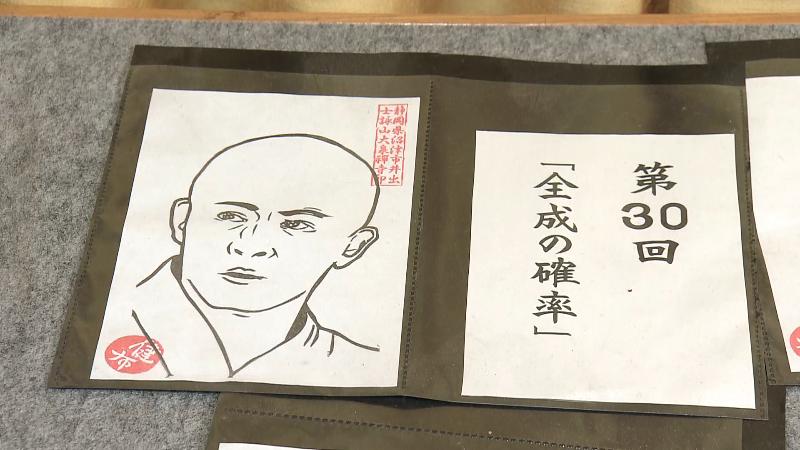 第
30
回
「全成の確率」
静岡県沼津市井出
士詠山大泉禅寺印